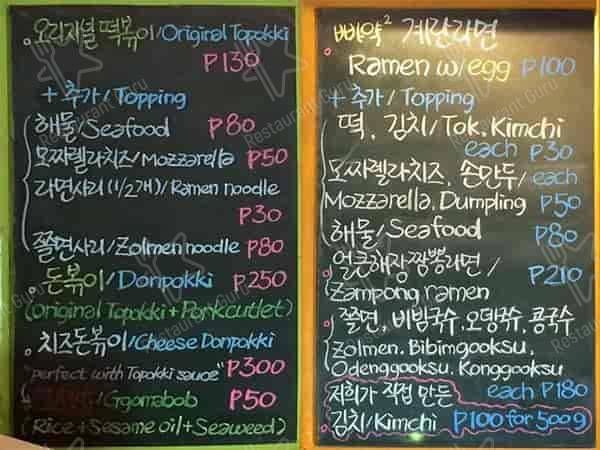 오리지널 떡볶이/Original Topokki
₱130
+ 추가 / Topping
해물/Seafood ₱80
모짜렐라치즈/Mozzarella ₱50
라면사리(1/2개)/Ramen noodle
₱30
쫄면사리/Zolmen noodle ₱80
돈볶이/Donpokki ₱250
(original Topokki + Porkcutlet)
치즈돈볶이/Cheese Donpokki
"perfect with Topokki sauce" ₱300
/Ggomabob ₱50
(Rice + Sesame oil + Seaweed)
삐약² 계란라면
Ramen w/egg ₱100
+ 추가 / Topping
떡, 김치/Tok, Kimchi
each ₱30
모짜렐라치즈, 손만두/each
Mozzarella, Dumpling ₱50
해물/Seafood ₱80
얼큰해장짬뽕라면 /
Zampong ramen ₱210
쫄면, 비빔국수, 오뎅국수, 콩국수
Zolmen, Bibimgooksu,
Odenggooksu, Konggooksu
저희가 직접 만든 each ₱180
김치/Kimchi ₱100 for 500g
Restaurant Guru